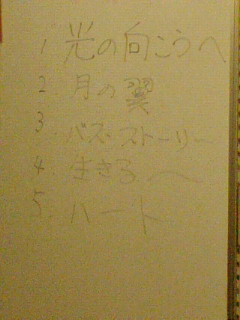 1 光の向こうへ
2 月の翼
3 バス・ストーリー
4. 生きろ
5. ハート